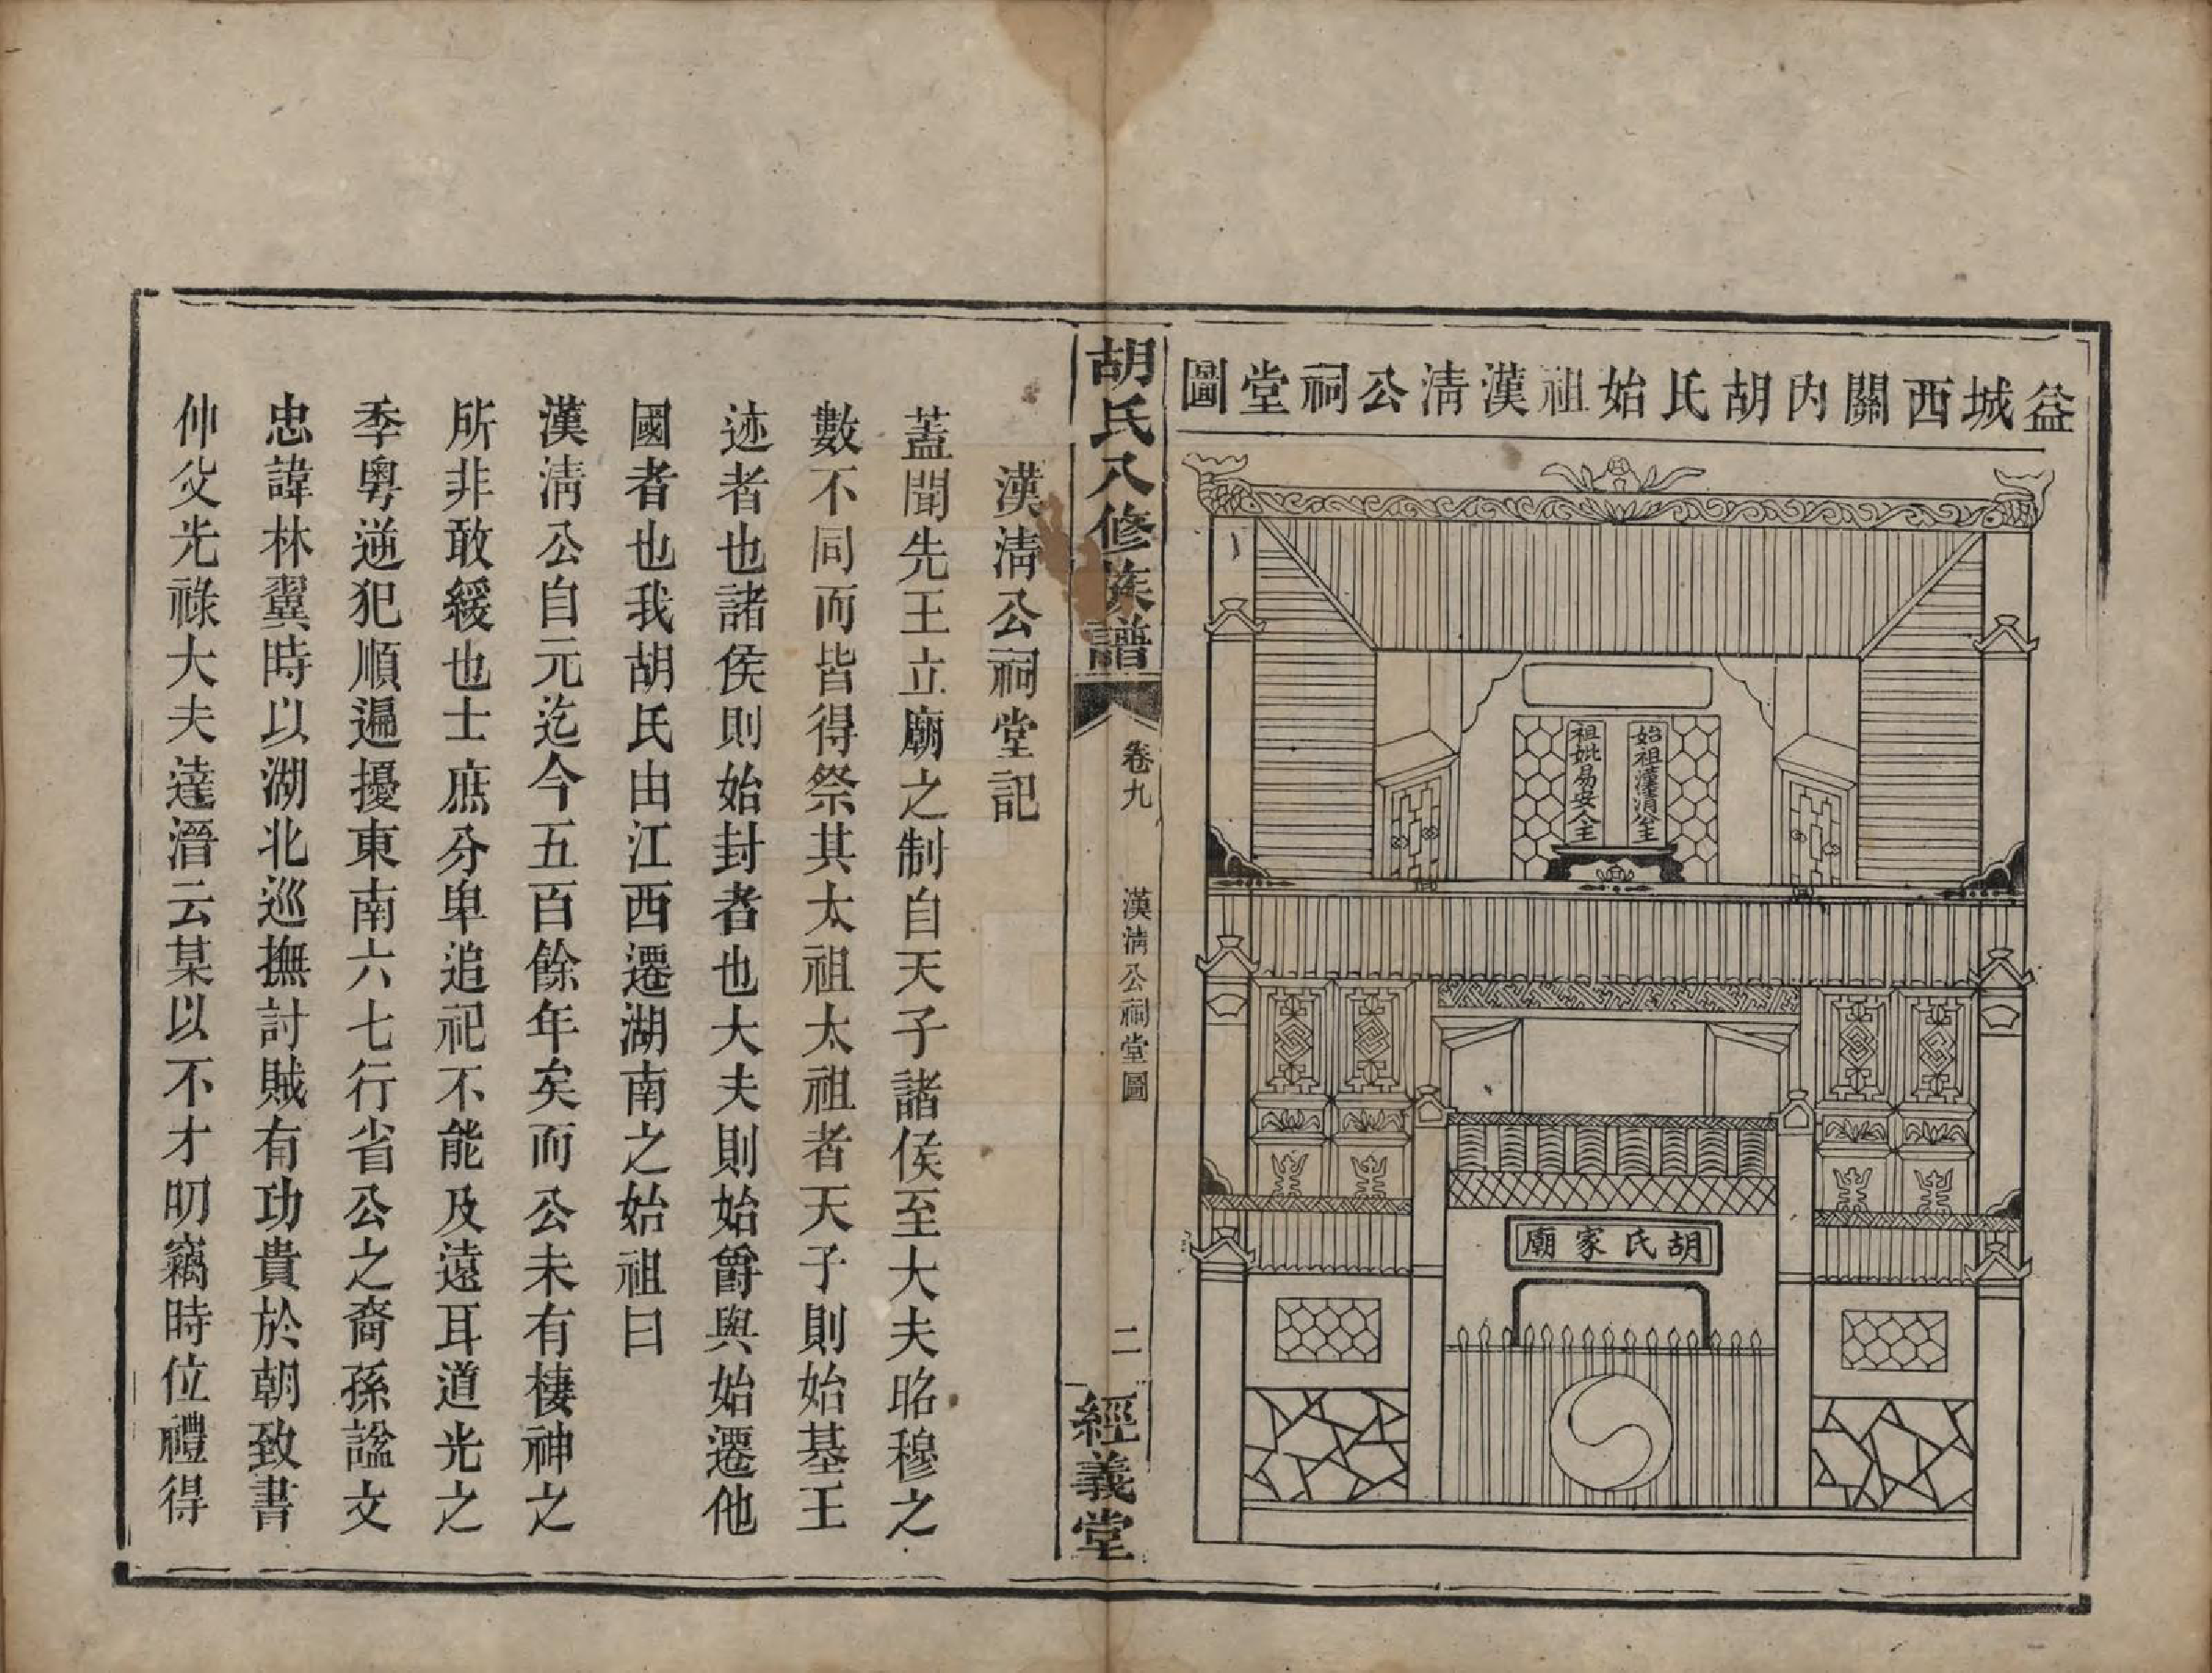 益城西關內胡氏始祖漢清公祠堂圖
始祖漢清公主
祖妣易安人主
胡氏家廟
胡氏八修族譜
卷九
漢清公祠堂圖
二
經義堂
漢清公祠堂記
蓋聞先王立廟之制自天子諸侯至大夫昭穆之
數不同而皆得祭其太祖太祖者天子則始基王
迹者也諸侯則始封者也大夫則始爵與始遷他
國者也我胡氏由江西遷湖南之始祖曰
漢清公自元迄今五百餘年矣而公未有棲神之
所非敢緩也士庶分卑追祀不能及遠耳道光之
季粵逆犯順遍擾東南六七行省公之裔孫諡文
忠諱林翼時以湖北巡撫討賊有功貴於朝致書
仲父光祿大夫達潛云某以不才叨竊時位禮得